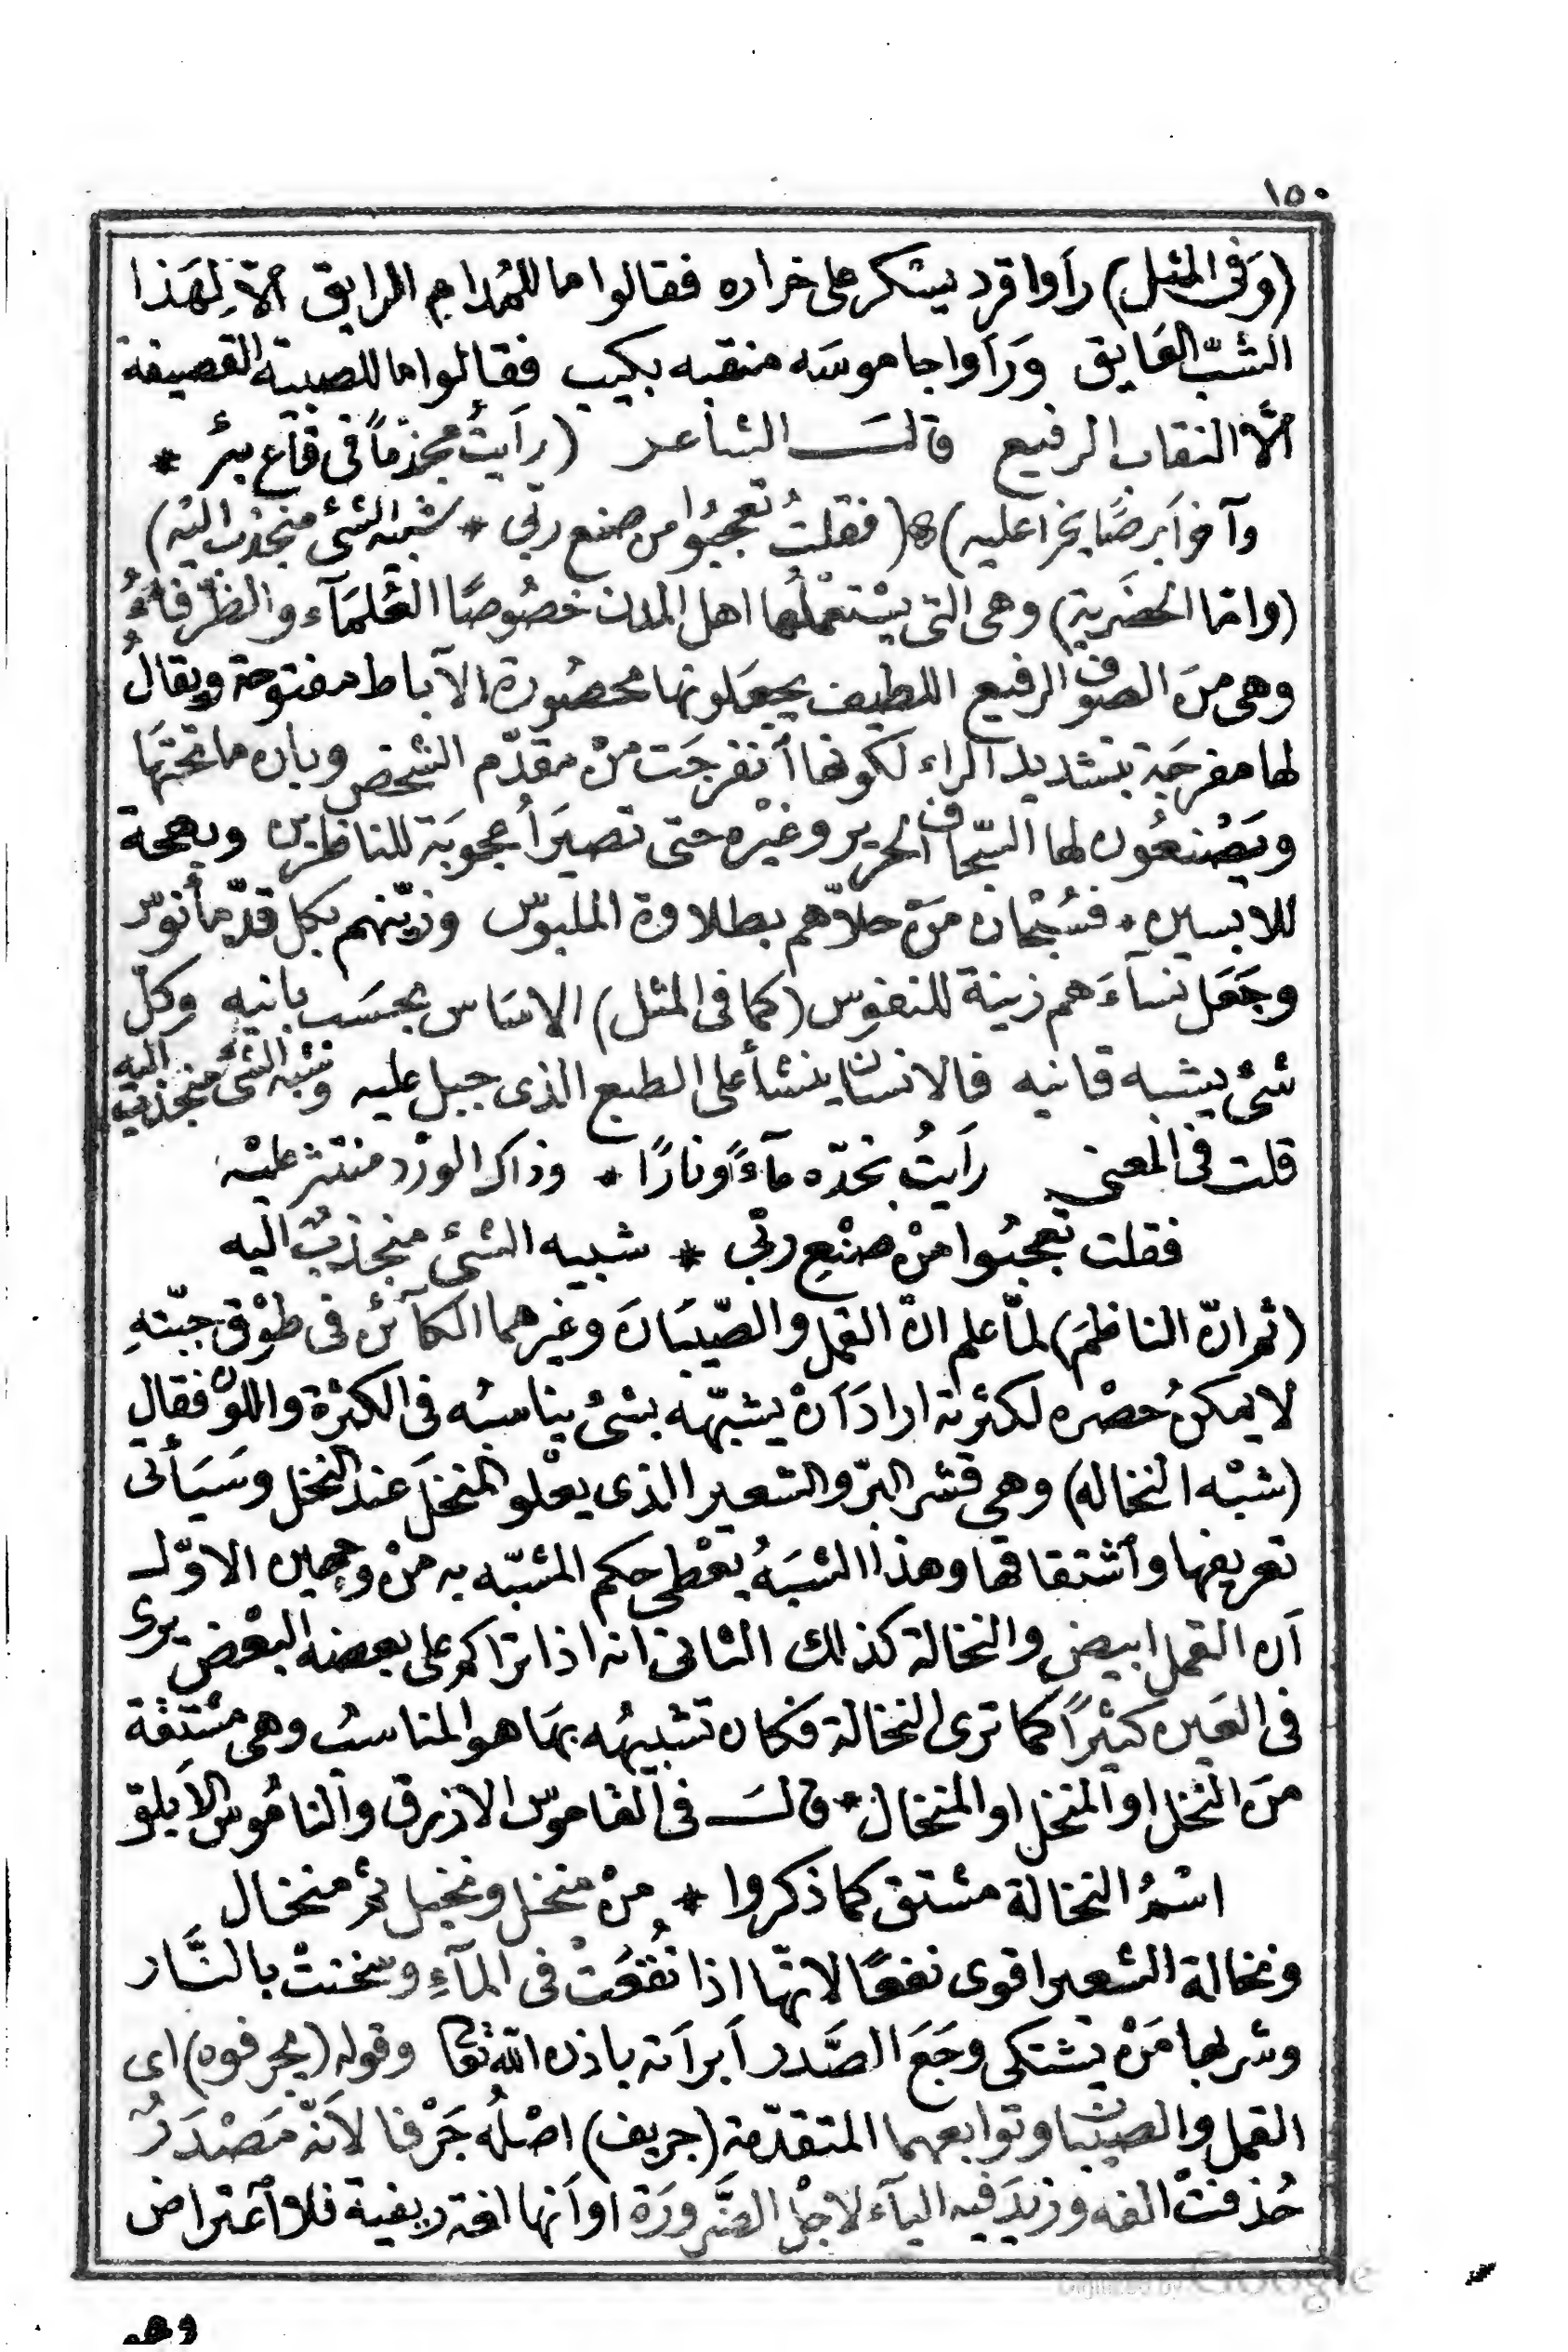 ١٥٠
(وَفى المثل) رأوا قرد يسكر على خراره فقالوا ما للمُدام الرايق الّا لِهَذا
الشبّ العَايق وَرَاوا جاموسَه منقبه بكيب فقالوا ما للصبية القصيفة
الَّا النقاب الرفيع قالـــ الشاعر (رَاَيتُ مجذّمًا فى قاع بئر *
وآخر اَبرصًا يخرا عليه) (فقلتُ تعجّبُوا من صنع ربّى * شبيه الشئ منجذب اليه)
(وامّا الحضَرية) وهى التى يسْتعْملُها اهل المدن خصُوصًا العُلمَآء والظُرفاءُ
وهى مِنَ الصوف الرفيع اللطيف يجعَلونها محصُورة الآباط مفتوحة ويقالُ
لها مفرجَة بتشديد الراء لكونها اَنفرجَت مِنْ مقدّم الشخص وبان ما تحتَها
ويَصْنعُون لها السّجاف الحرير وغيْره حتى تصيرَ اُعجوبَة للناظرين وبهجة
للابسين * فسُبْحان مَنْ حلاّهم بطلاوة الملبوس وزيّنهم بكل قدّ مأنوس
وجَعَل نسآءَهم زينة للنفوس (كما فى المثل) الاسَاس بحسَب بانيه وكلّ
شئ يشبه قانيه فالانسان ينشأ على الطبع الذى جبل عليه وشبه الشئ منجذب اليه
قلت فى المعنى رَاَيتُ بخدّه مآءً ونارًا * وذاك الورْد منتثر عليْه
فقلت تعجبُوا مِنْ صنْعِ ربّى * شبيه الشئ منجذبٌ اليه
(ثم انّ الناظمَ) لمّا علم انّ القمل والصّيبَانَ وغيرهما الكآئن فى طوْق جبّتهِ
لا يمكنُ حصْره لكثرته ارادَ اَنْ يشبّهه بشئ يناسبُه فى الكثرْة واللون فقال
(شبْه النخاله) وهى قشر البرّ والشعير الذى يعْلو المنخلَ عند النخل وسَيَأتى
تعريفها واَشتقاقها وهذا الشبَهُ يعْطى حكم المشبّه به مِنْ وجهين الاوّل
اَن القمل ابيض والنخالة كذلك الثانى انه اذا تراكم على بعضه البعْض يرى
فى العَين كثيْرًا كما ترى النخالة فكان تشبيهُه بهَا هو المناسبُ وهى مشتقة
مِنَ النخل او المنخل او المنخال * قالـــ فى القاموس الازرق والناموس الاَبلق
اسْمُ النخالة مشتق كما ذكروا * مِنْ منخل ونخيل ثم منخال
ونخالة الشعير اقوى نفعًا لانّها اذا نُقعَتْ فى المآءِ وسخنتْ بالنَّار
وشربها مَنْ يشتكى وجَعَ الصَّدر اَبراَته باذن الله تعا وقوله (يجرفوه) اى
القمل والصيبان وتوابعهما المتقدّمة (جريف) اصْلُه جَرْفا لاَنّه مَصْدَرٌ
حُذفتْ الفه وزيدَ فيه اليآء لاجْل الضَّرورَة او اَنها لغة ريفية فلا اَعتراض